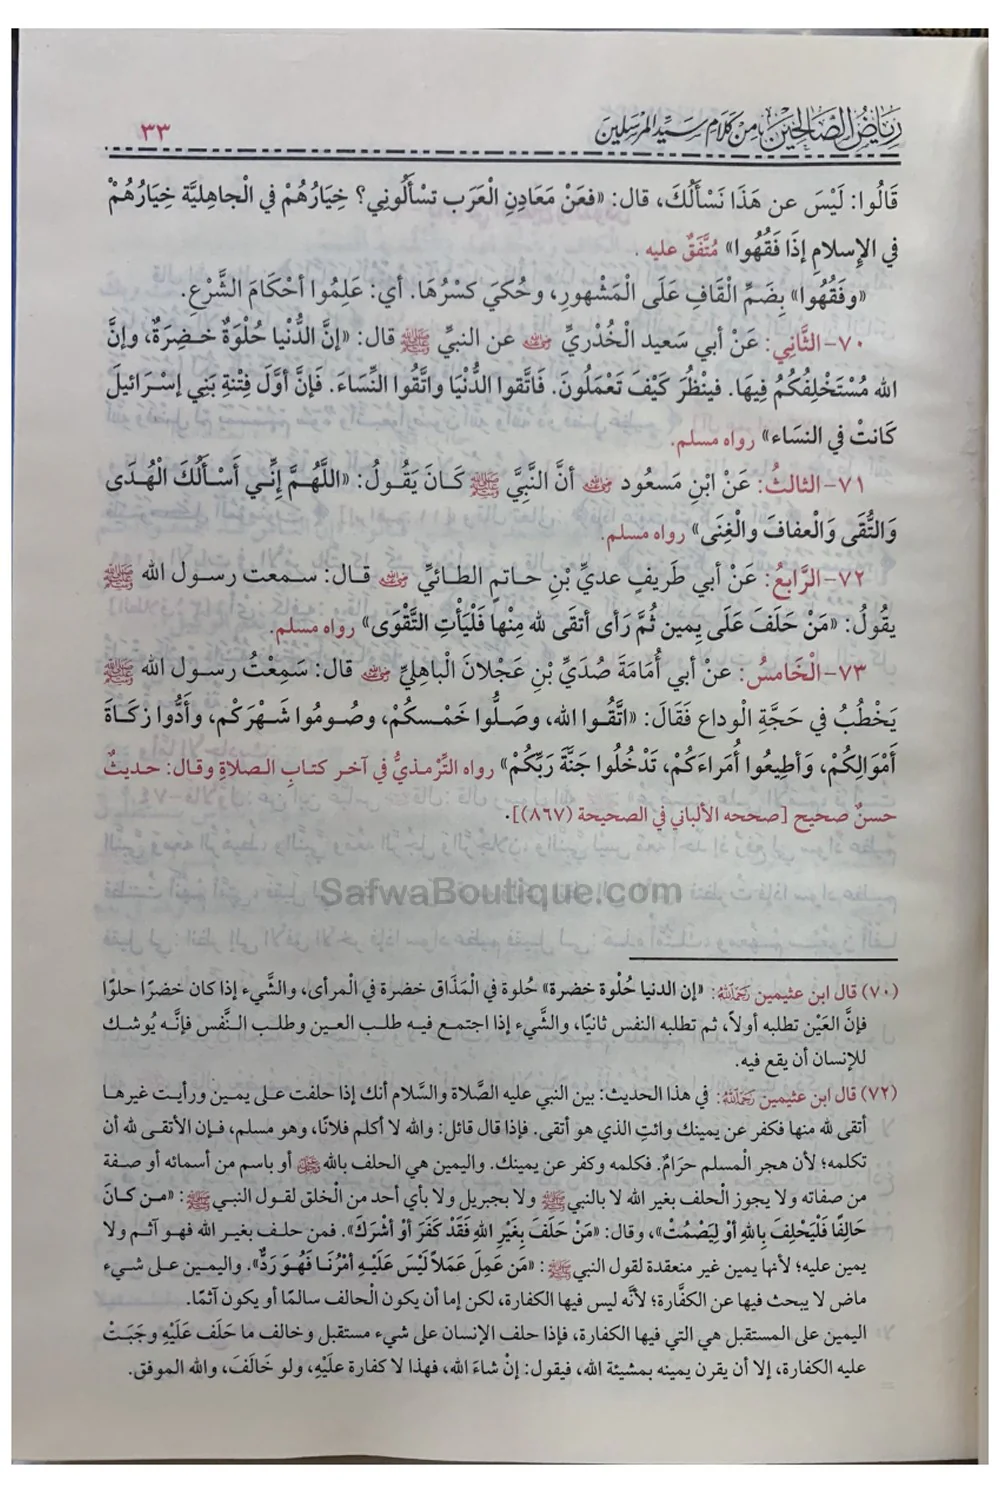 رياض الصالحين من كلام سيد المرسلين
٣٣
قَالُوا: لَيْسَ عن هَذَا نَسْأَلُكَ، قال: «فعَنْ مَعَادِنِ الْعَرَب تسْأَلُونِي؟ خِيَارُهُمْ في الْجاهليَّة خِيَارُهُمْ
في الإِسلامِ إذَا فَقُهُوا» مُتَّفَقٌ عليه .
«وفَقُهُوا» بِضَمِّ الْقَافِ عَلَى الْمَشْهورِ، وحُكيَ كسْرُهَا. أي: عَلِمُوا أحْكَامَ الشَّرْعِ.
٧٠-الثَّانِي: عَنْ أبي سَعيد الْخُدْريِّ رضي الله عنه عن النبيِّ ﷺ قال: «إنَّ الدُّنْيا حُلْوَةٌ خـضِرَةٌ، وإنَّ
الله مُسْتَخْلِفُكُمْ فِيهَا. فينْظُرَ كَيْفَ تَعْمَلُونَ. فَاتَّقوا الدُّنْيَا واتَّقُوا النِّسَاءَ. فَإِنَّ أوَّلَ فِتْنةِ بَنِي إسْرَائيلَ
كَانتْ في النسَاء» رواه مسلم.
٧١-الثالثُ: عَنْ ابْنِ مَسْعُود رضي الله عنه أنَّ النَّبِيَّ ﷺ كَـانَ يَقُـولُ: «اللَّهُـمَّ إنِّـي أَسْـأَلُكَ الْهُـدَى
وَالتُّقَى وَالْعفافَ والْغِنَى» رواه مسلم.
٧٢-الرَّابعُ: عَنْ أبي طَريفٍ عديِّ بْنِ حـاتمٍ الطـائيِّ رضي الله عنه قـال: سـمعت رسـول الله ﷺ
يقُولُ: «مَنْ حَلَفَ عَلَى يمِين ثُمَّ رَأى أتقَى لله مِنْها فَلْيَأْتِ التَّقْوَى» رواه مسلم.
٧٣-الْخَامسُ: عنْ أبي أُمَامَةَ صُدَيِّ بْنِ عَجْلانَ الْباهِليِّ رضي الله عنه قال: سَمِعْتُ رسول الله ﷺ
يَخْطُبُ في حَجَّةِ الْوداع فَقَالَ: «اتَّقُـوا الله، وصَـلُّوا خَمْـسكُمْ، وصُـومُوا شَـهْرَكم، وأَدُّوا زكَـاةَ
أَمْوَالِكُمْ، وَأَطِيعُوا أُمَرَاءَكُمْ، تَدْخُلُوا جَنَّةَ رَبِّكُمْ» رواه التِّرْمذيُّ في آخـر كتـابِ الـصلاةِ وقـال: حـديثٌ
حسنٌ صحيح [صححه الألباني في الصحيحة (٨٦٧)].
SafwaBoutique.com
(٧٠) قال ابن عثيمين رحمه الله: «إن الدنيا حُلْوة خضرة» حُلوة في الْمَذَاق خضرة في الْمرأى، والشَّيء إذا كان خضرًا حلوًا
فإنَّ العَيْن تطلبه أولاً، ثم تطلبه النفس ثانيًا، والشَّيء إذا اجتمـع فيـه طلـب العـين وطلـب الـنَّفس فإنَّـه يُوشـك
للإنسان أن يقع فيه.
(٧٢) قال ابن عثيمين رحمه الله: في هذا الحديث: بين النبي عليه الصَّلاة والسَّلام أنك إذا حلفت علـى يمـين ورأيـت غيرهـا
أتقى لله منها فكفر عن يمينك وائتِ الذي هو أتقى. فإذا قال قائل: والله لا أكلم فلانًا، وهو مسلم، فـإن الأتقـى لله أن
تكلمه؛ لأن هجر الْمسلم حرَامٌ. فكلمه وكفر عن يمينك. واليمين هي الحلف بالله ﷻ أو باسم من أسمائه أو صـفة
من صفاته ولا يجوز الْحلف بغير الله لا بالنبي ﷺ ولا بجبريل ولا بأي أحد من الْخلق لقول النبـي ﷺ: «مـن كَـانَ
حَالِفًا فَلْيَحْلِفَ بِاللهِ أوْ لِيَصْمُتْ»، وقال: «مَنْ حَلَفَ بِغَيْرِ اللهِ فَقَدْ كَفَرَ أوْ أشْرَكَ». فمن حلـف بغيـر الله فهـو آثـم ولا
يمين عليه؛ لأنها يمين غير منعقدة لقول النبي ﷺ: «مَن عَمِلَ عَمَلاً لَيْسَ عَلَيْـهِ أمْرُنَـا فَهُـوَ رَدٌّ». واليمـين علـى شـيء
ماض لا يبحث فيها عن الكفَّارة؛ لأنَّه ليس فيها الكفارة، لكن إما أن يكون الْحالف سالمًا أو يكون آثمًا.
اليمين على المستقبل هي التي فيها الكفارة، فإذا حلف الإنسان على شيء مستقبل وخالف ما حَلَف عَلَيْهِ وجَبَتْ
عليه الكفارة، إلا أن يقرن يمينه بمشيئة الله، فيقول: إنْ شاءَ الله، فهذا لا كفارة علَيْهِ، ولو خَالَفَ، والله الموفق.